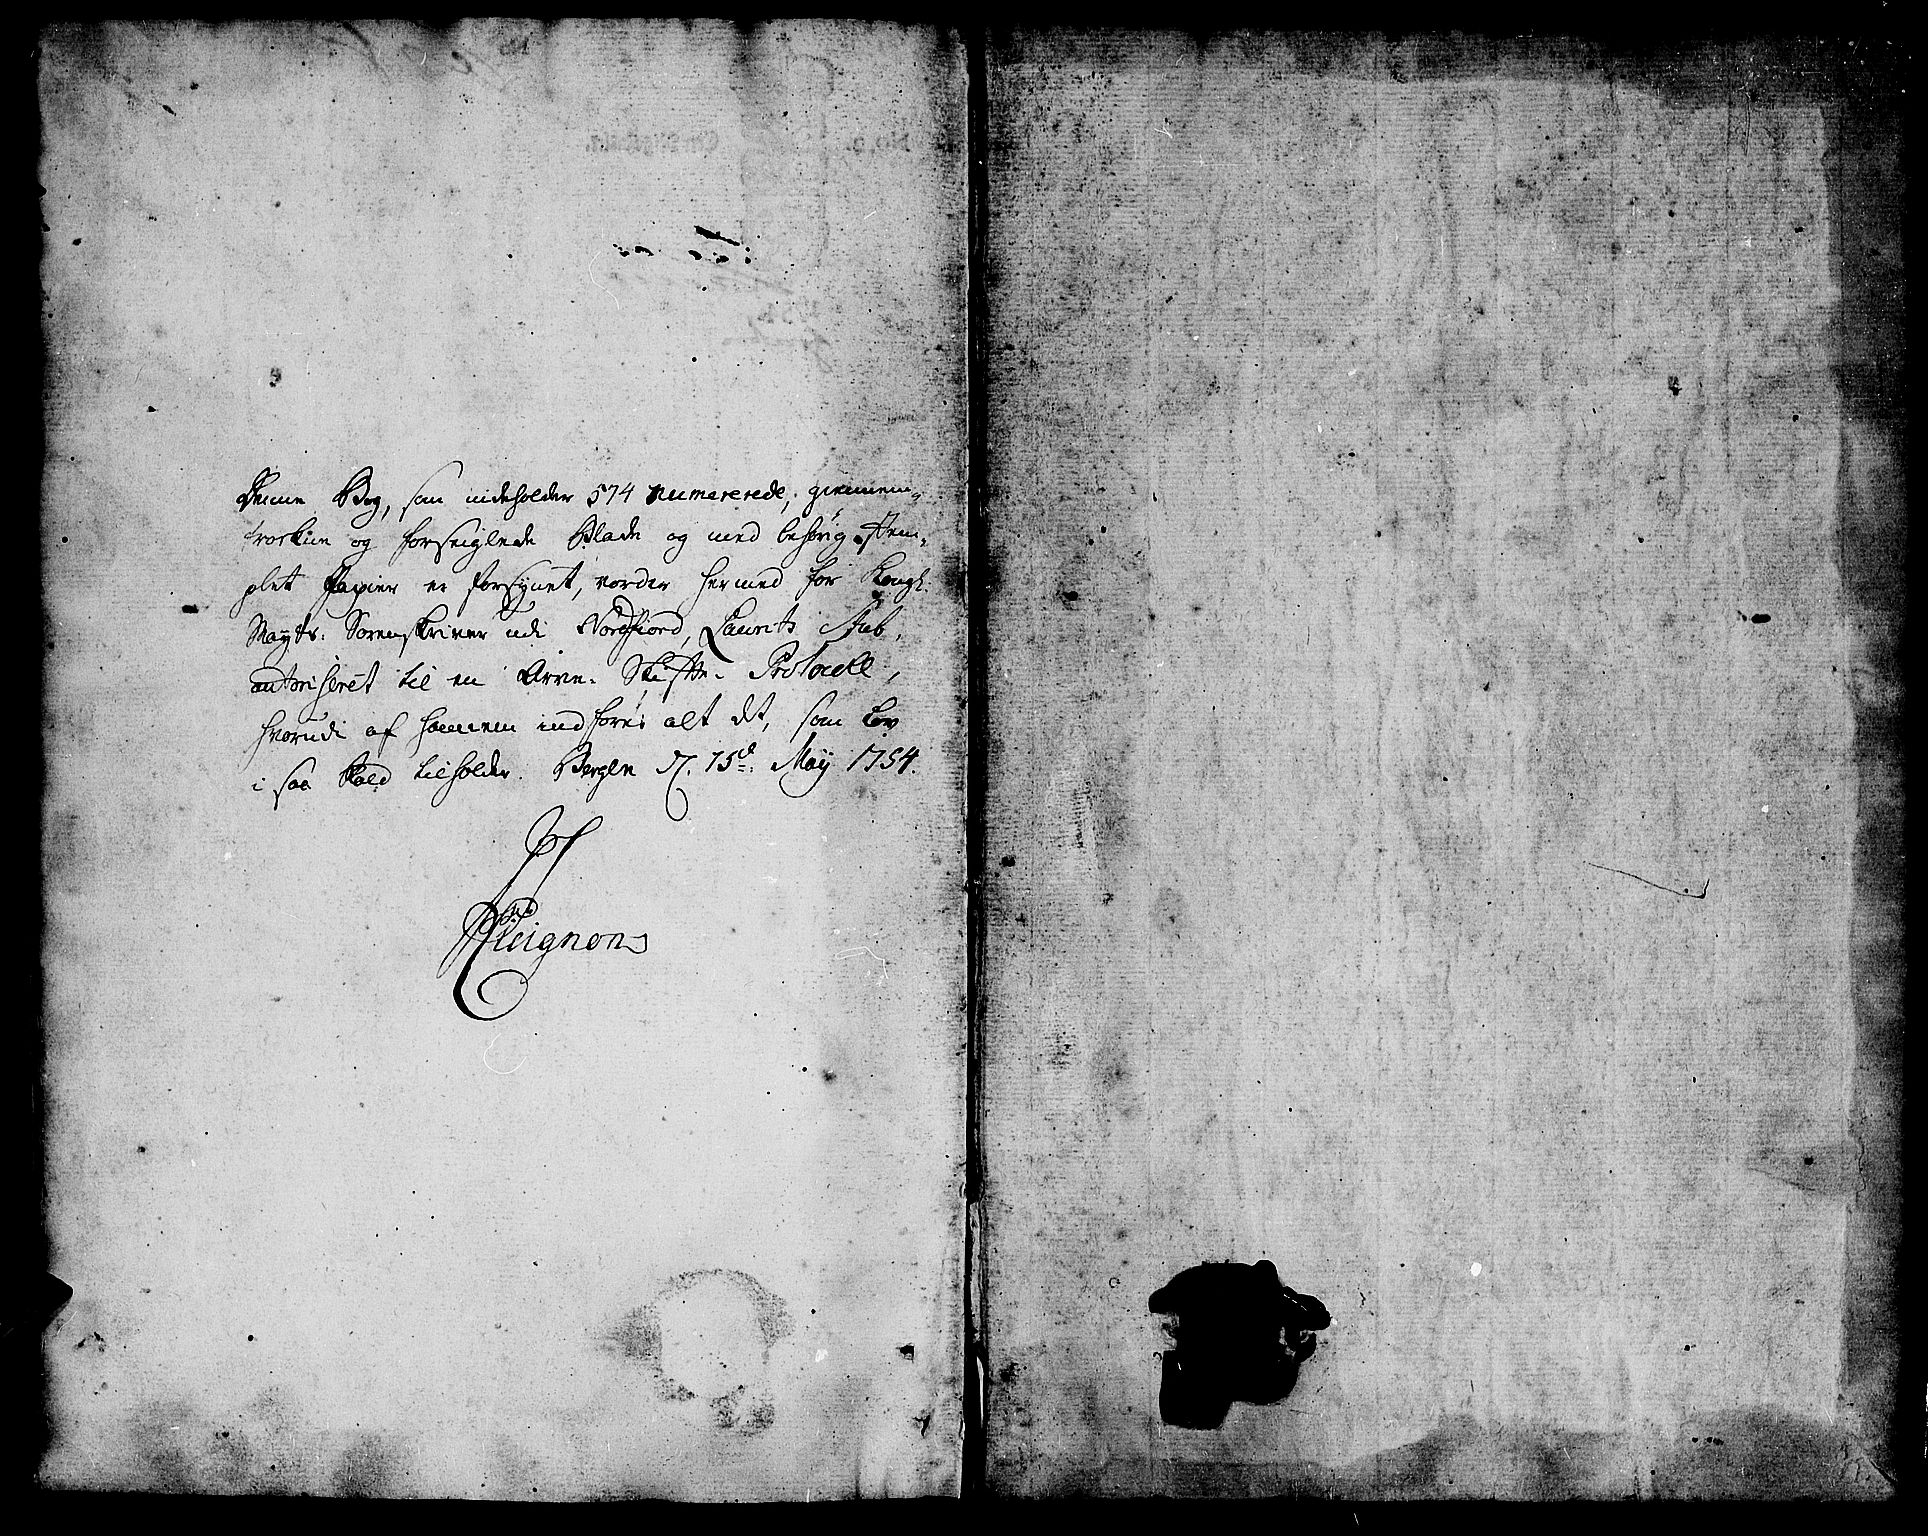 Denne Bog, som indeholder 574 numererede, giennem-
trækne og forseiglede Blade og med behørig Stem-
plet Papier er forsynet, vorder hermed for Kongl.
Mayts: Sorenskriver udi Nordfiord, Laurits Stub,
autoriseret til en Arve- Skifte- Protocoll,
hvorudi af hannem indføres alt det, som Lov
i saa Fald tilholder. Bergen D. 15de: Maÿ 1754.